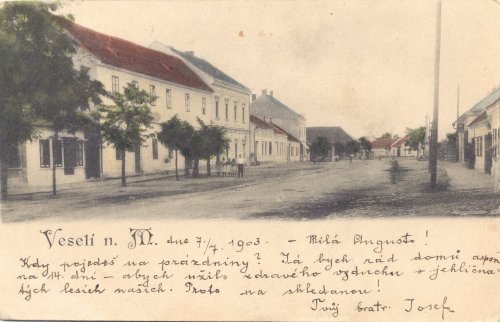 Veselí n. M. dne 7/7 1903. - Milá Augusto!
Kdy pojedeš na prázdniny? Já bych rád domů aspoň
na 14. dní - abych užil zdravého vzduchu v jehlična-
tých lesích našich. Proto na shledanou!
Tvůj bratr Josef